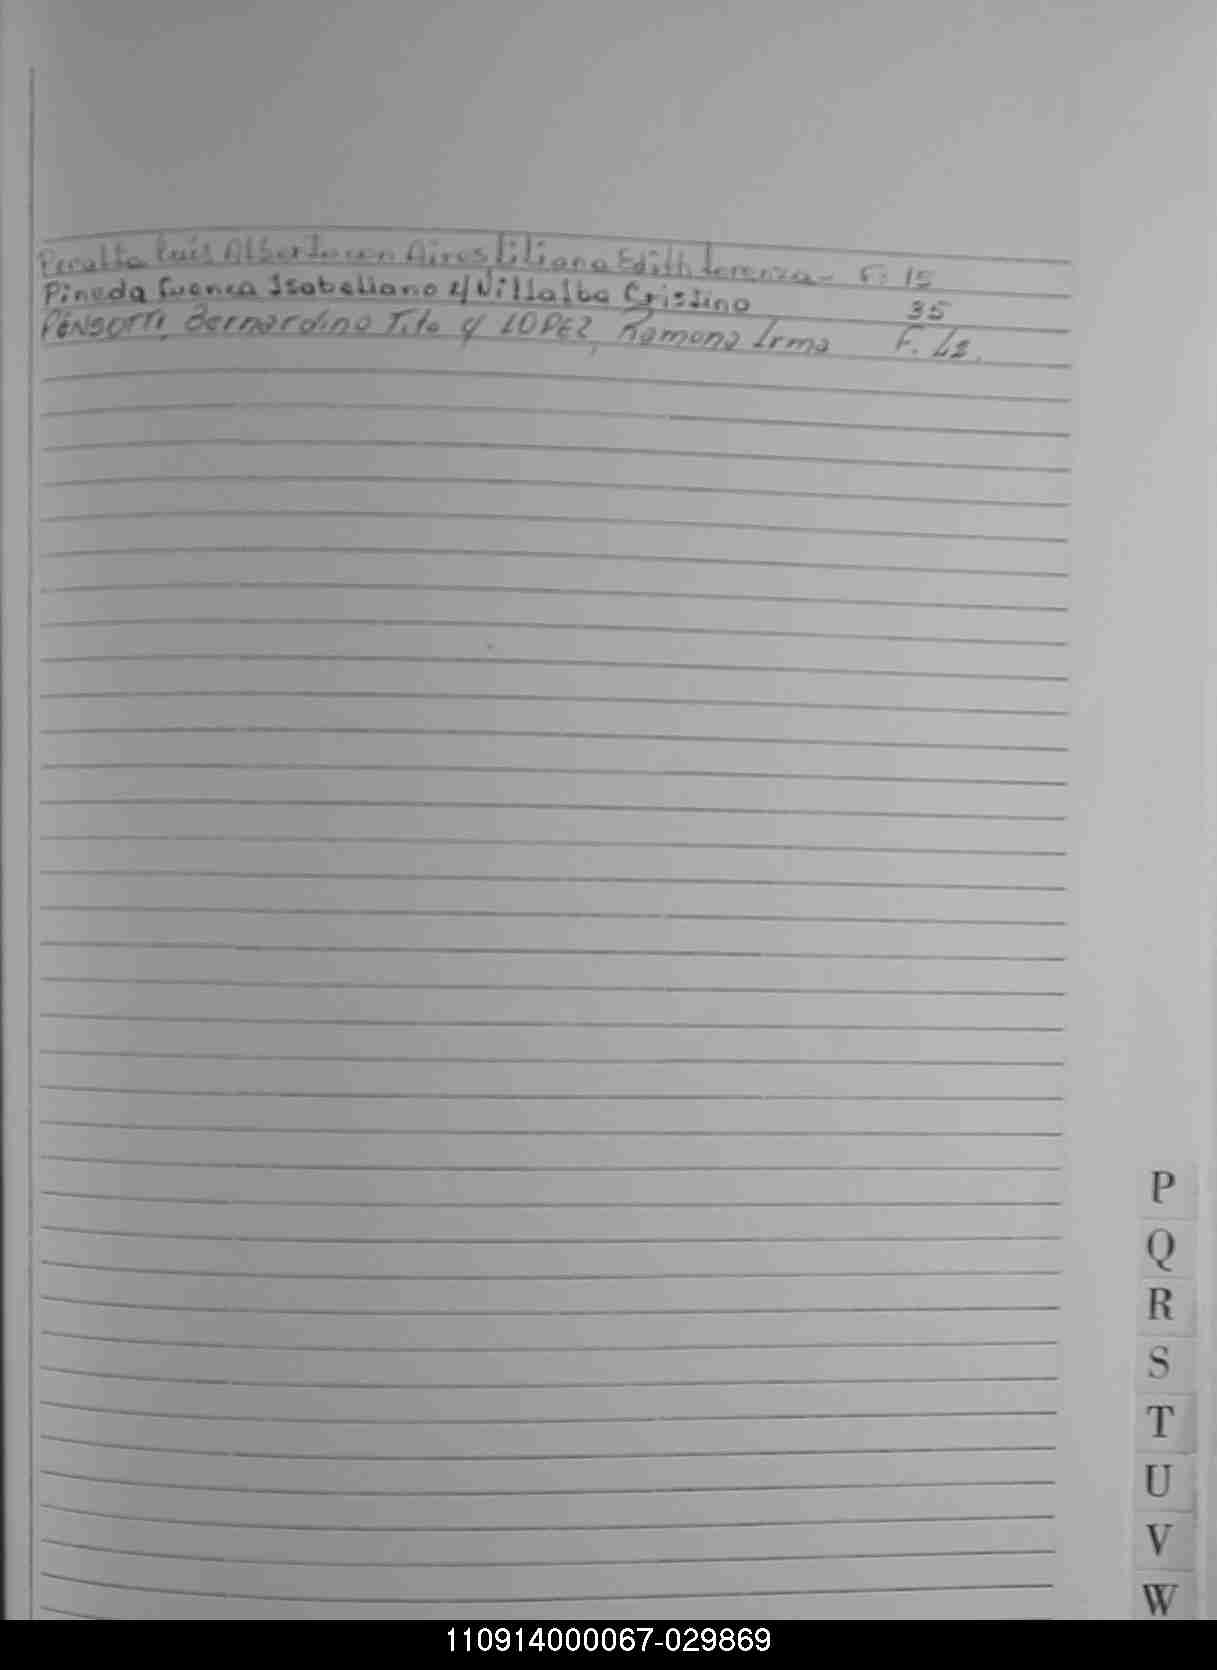 Peralta Luis Alberto con Aires Liliana Edith Lorenza - F. 15
Pineda Cuenca Isabeliano c/ Villalba Cristina 35
PENSOTTI, Bernardino Tito y LOPEZ, Ramona Irma F.
P
Q
R
S
T
U
V
W
110914000067-029869